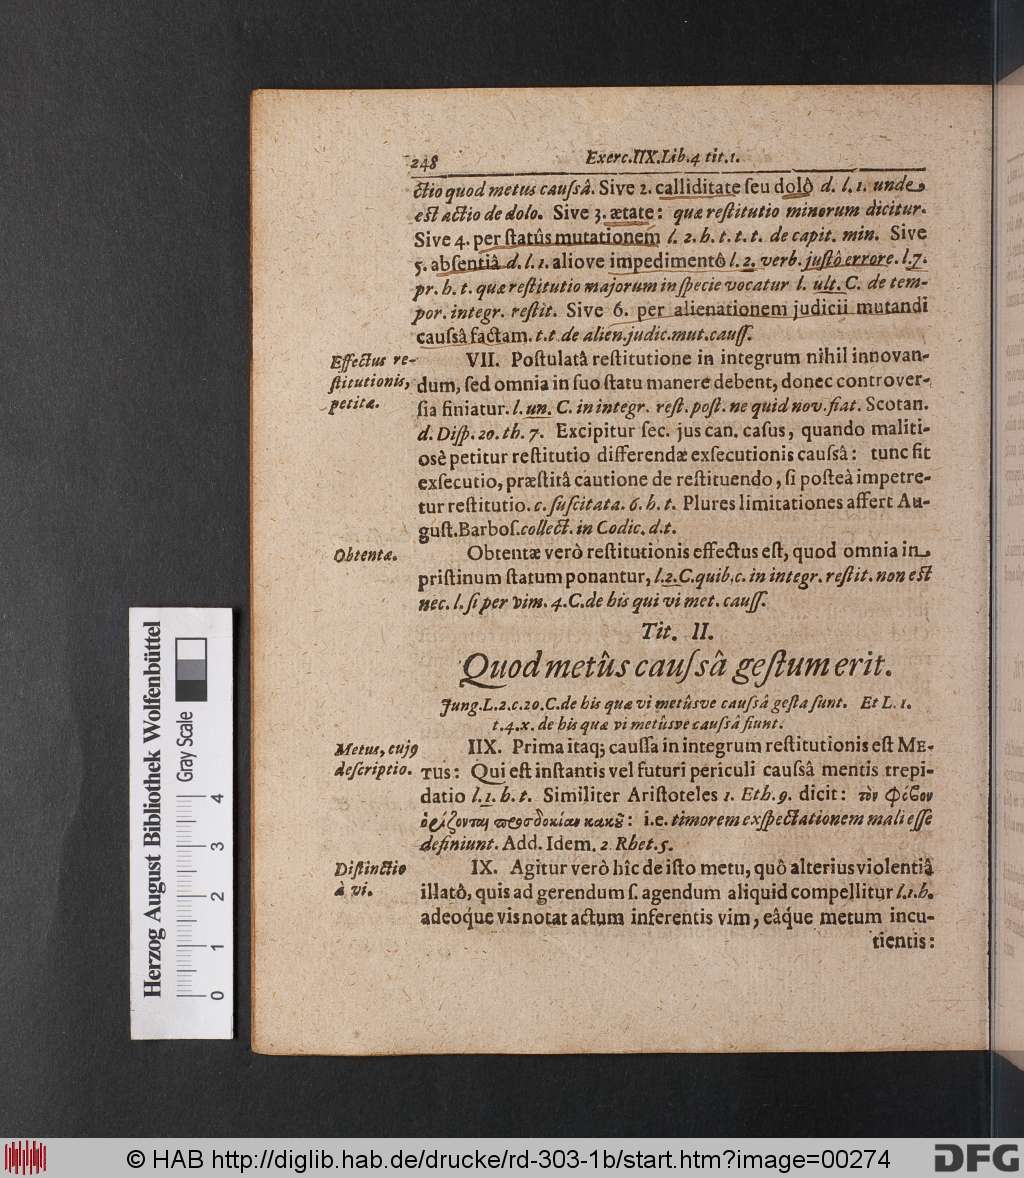 248 Exerc.IIX.Lib.4 tit.1.
ctio quod metus caussâ. Sive 2. calliditate seu dolô d. l. 1. unde
est actio de dolo. Sive 3. ætate: quæ restitutio minorum dicitur.
Sive 4. per statûs mutationem l. 2. h. t. t. t. de capit. min. Sive
5. absentiâ d. l. 1. aliove impedimentô l. 2. verb. justô errore. l. 7.
pr. h. t. quæ restitutio majorum in specie vocatur l. ult. C. de tem-
por. integr. restit. Sive 6. per alienationem judicii mutandi
caussâ factam. t.t de alien. judic. mut. causs.
Effectus re-
stitutionis,
petitæ.
VII. Postulatâ restitutione in integrum nihil innovan-
dum, sed omnia in suo statu manere debent, donec controver-
sia finiatur. l. un. C. in integr. rest. post. ne quid nov. fiat. Scotan.
d. Disp. 20. th. 7. Excipitur sec. jus can. casus, quando maliti-
osè petitur restitutio differendæ exsecutionis caussâ: tunc fit
exsecutio, præstitâ cautione de restituendo, si posteà impetre-
tur restitutio. c. suscitata. 6. h. t. Plures limitationes affert Au-
gust. Barbos. collect. in Codic. d. t.
Obtentæ.
Obtentæ verò restitutionis effectus est, quod omnia in
pristinum statum ponantur, l. 2. C. quib. c. in integr. restit. non est
nec. l. si per vim. 4. C. de his qui vi met. causs.
Tit. II.
Quod metûs caussâ gestum erit.
Jung. L. 2. c. 20. C. de his quæ vi metûsve caussâ gesta sunt. Et L. 1.
t. 4. x. de his quæ vi metûsve caussâ fiunt.
Metus, cujꝰ
descriptio.
IIX. Prima itaq; caussa in integrum restitutionis est ME-
TUS: Qui est instantis vel futuri periculi caussâ mentis trepi-
datio l. 1. h. t. Similiter Aristoteles 1. Eth. 9. dicit: τὸν φόβον
ὁρίζονται προσδοκίαν κακοῦ: i.e. timorem exspectationem mali esse
definiunt. Add. Idem. 2 Rhet. 5.
Distinctio
à vi.
IX. Agitur verò hîc de isto metu, quô alterius violentiâ
illatô, quis ad gerendum s. agendum aliquid compellitur l. 1. h.
adeoque vis notat actum inferentis vim, eâque metum incu-
tientis:
Herzog August Bibliothek Wolfenbüttel
Gray Scale
0 1 2 3 4
© HAB http://diglib.hab.de/drucke/rd-303-1b/start.htm?image=00274
DFG